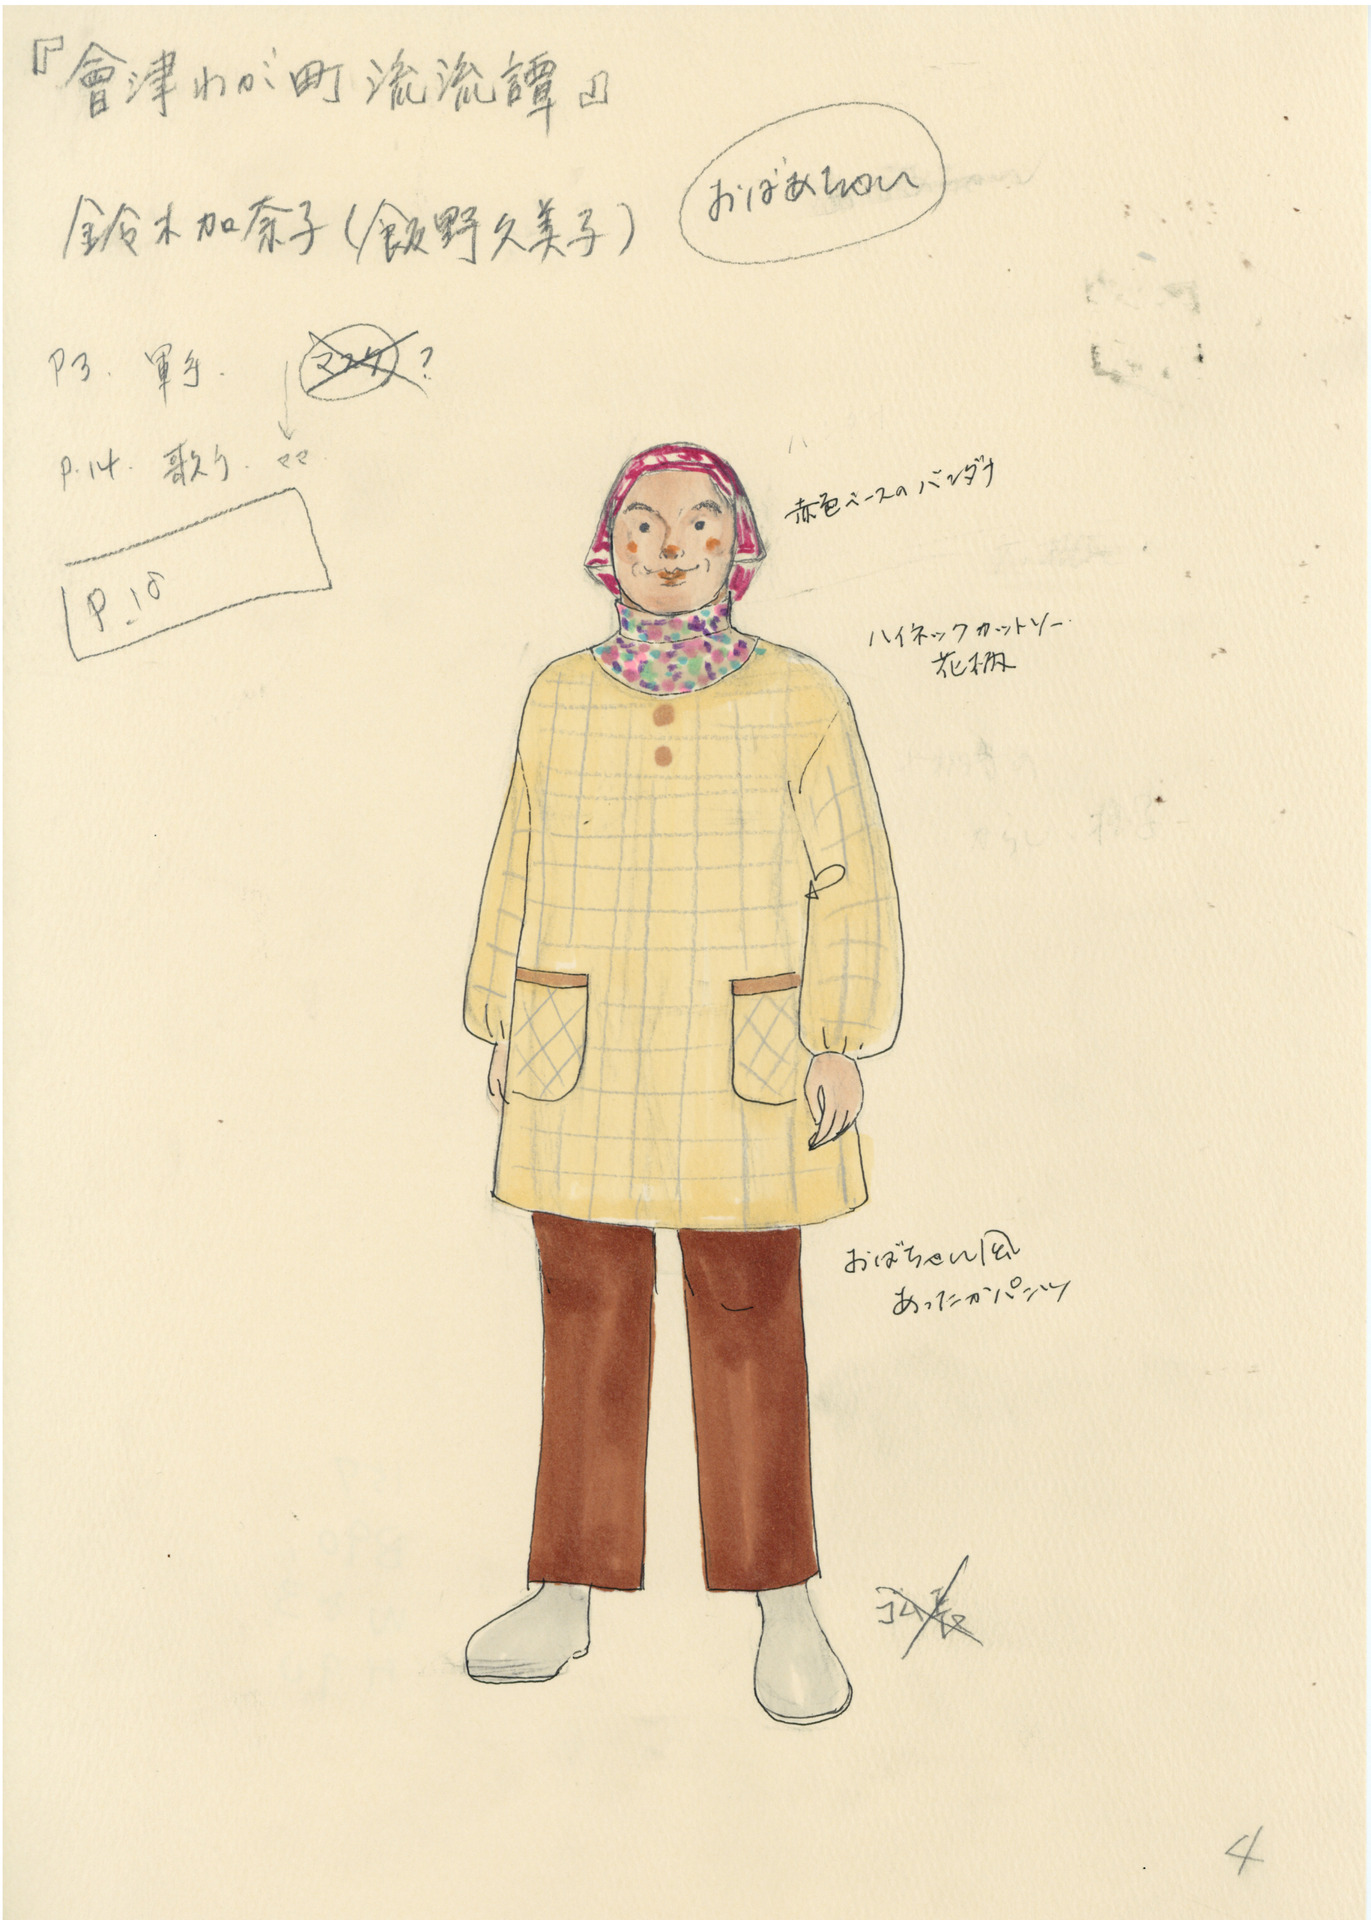 『會津わが町流流譚』
鈴木加奈子(飯野久美子)
おばあちゃん
P3. 軍手.
マスク?
P.14. 歌う. ママ.
P.18
赤色ベースのバンダナ
ハイネックカットソー.
花柄
おばちゃん風
あったかパンツ
ゴム長
4